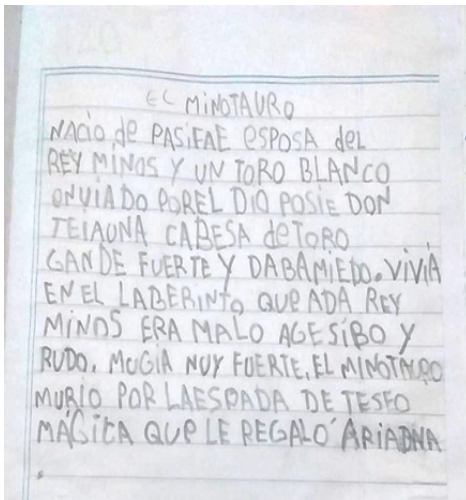 EL MINOTAURO
NACIO de PASIFAE ESPOSA deL
REY MINOS Y UN TORO BLANCO
ONVIADO POREL DIO POSIE DON
TEIAUNA CABESA deTORO
GANDE FUERTE Y DABAMIEDO. VIVIA
EN EL LABERINTO QUE ADA REY
MINOS ERA MALO AGESIBO Y
RUDO. MUGIA NUY FUERTE. EL MINOTAURO
MURIO POR LAESPADA DE TESEO
MÁGICA QUE LE REGALÓ ARIADNA